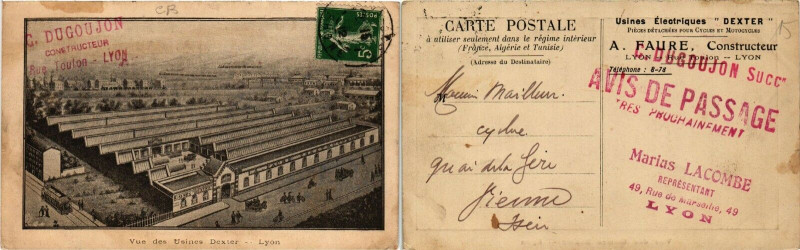 CB
G. DUGOUJON
CONSTRUCTEUR
Rue Toulon - LYON
5c
Vue des Usines Dexter - Lyon
CARTE POSTALE
à utiliser seulement dans le régime intérieur
(France, Algérie et Tunisie)
(Adresse du Destinataire)
Usines Électriques "DEXTER"
PIÈCES DÉTACHÉES POUR CYCLES ET MOTOCYCLES
A. FAURE, Constructeur
LYON - Toulon - LYON
Téléphone : 8-78
15
DUGOUJON Succr
AVIS DE PASSAGE
TRÈS PROCHAINEMENT
Marius LACOMBE
REPRÉSENTANT
49, Rue de Marseille, 49
LYON
M
cycles
quai de la
Vienne
Isère